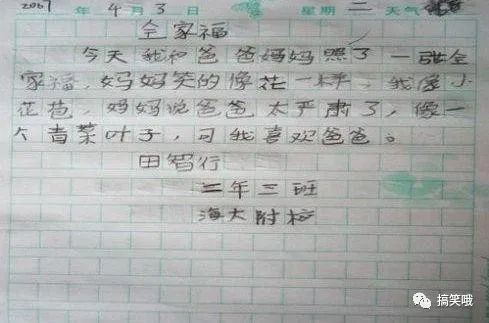 2007年4月3日 星期二 天气
全家福
今天我和爸爸妈妈照了一张全
家福，妈妈笑的像花一样，我像小
花苞，妈妈说爸爸太严肃了，像一
个青菜叶子，可我喜欢爸爸。
田智行
二年三班
海大附校
搞笑哦